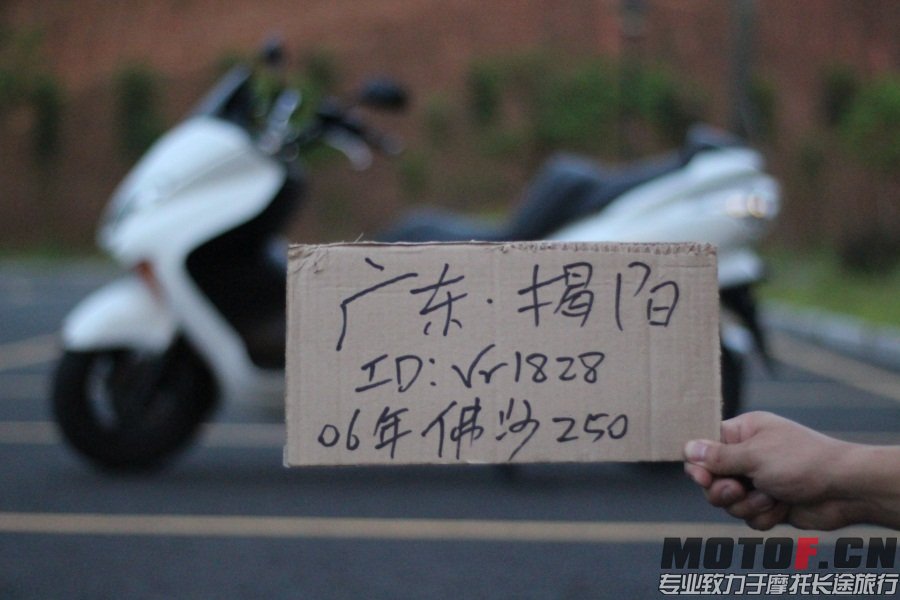 广东·揭阳
ID:Vr1828
06年佛沙250
MOTOF.CN
专业致力于摩托长途旅行